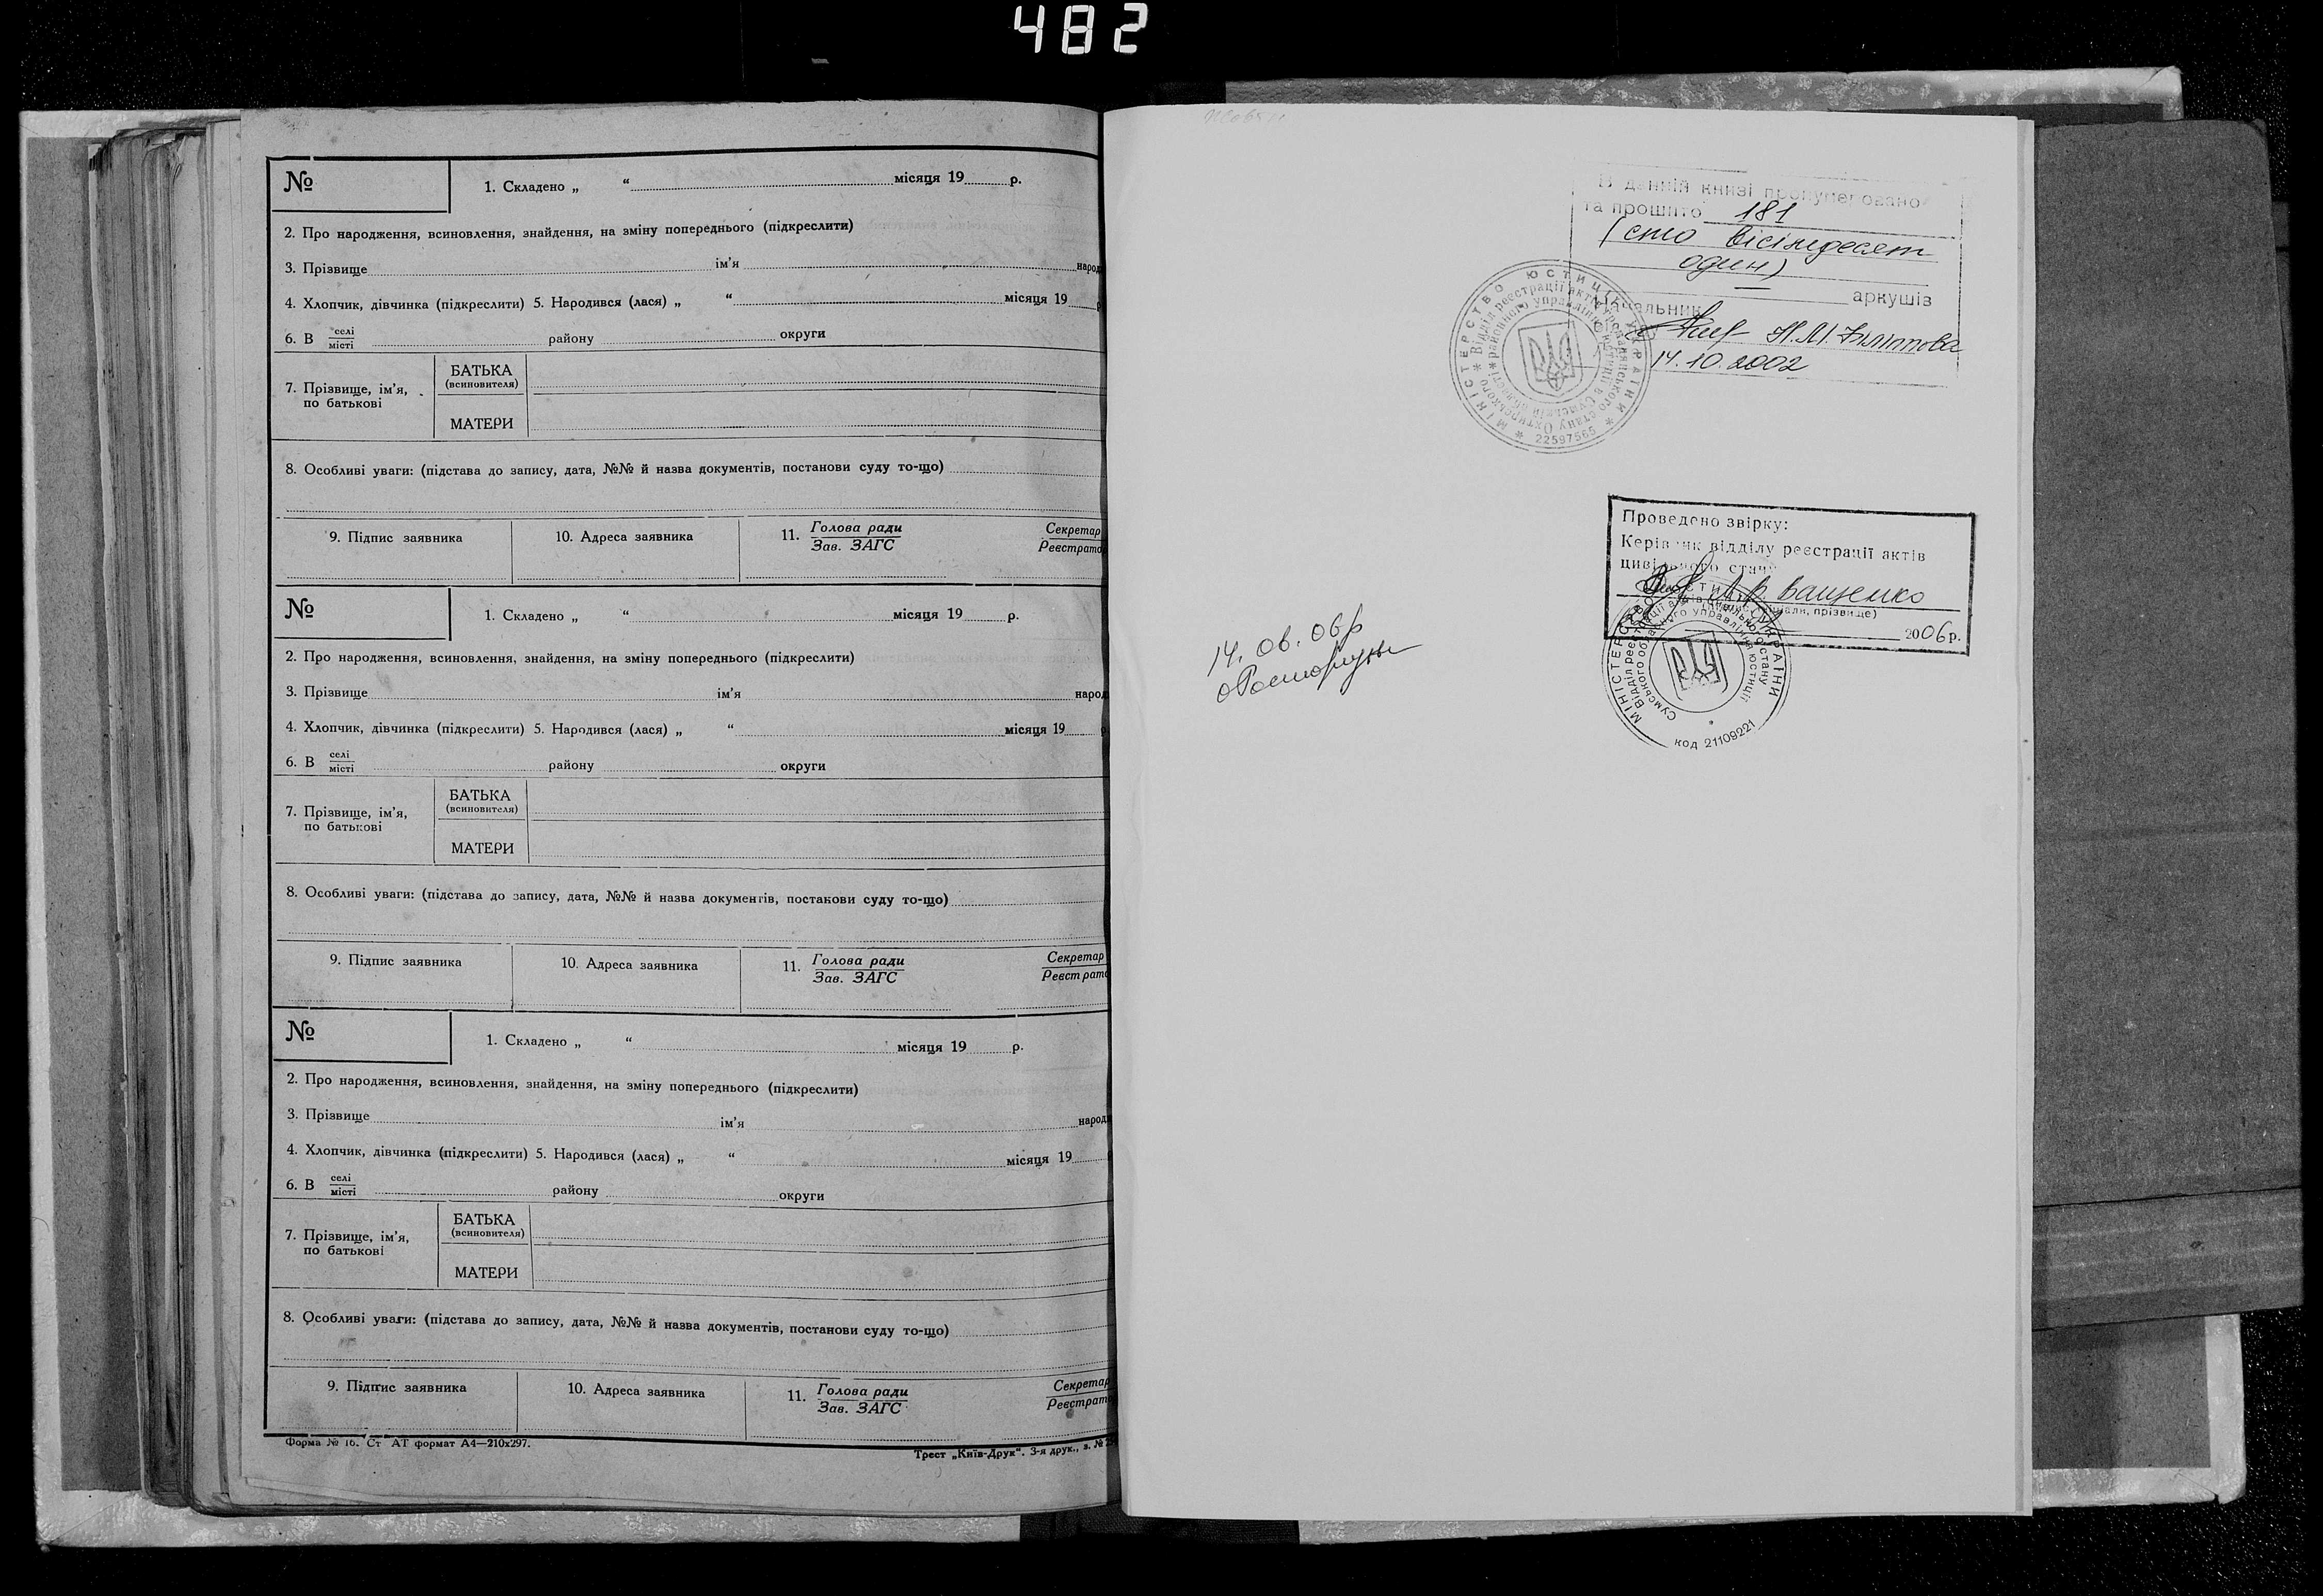 482
№
1. Складено „ “ місяця 19 р.
2. Про народження, всиновлення, знайдення, на зміну попереднього (підкреслити)
3. Прізвище ім’я народ
4. Хлопчик, дівчинка (підкреслити) 5. Народився (лася) „ “ місяця 19
6. В селі/місті району округи
7. Прізвище, ім’я, по батькові
БАТЬКА
(всиновителя)
МАТЕРИ
8. Особливі уваги: (підстава до запису, дата, №№ й назва документів, постанови суду то-що)
9. Підпис заявника
10. Адреса заявника
11. Голова ради/Зав. ЗАГС
Секретар
Реєстрато
№
1. Складено „ “ місяця 19 р.
2. Про народження, всиновлення, знайдення, на зміну попереднього (підкреслити)
3. Прізвище ім’я народ
4. Хлопчик, дівчинка (підкреслити) 5. Народився (лася) „ “ місяця 19
6. В селі/місті району округи
7. Прізвище, ім’я, по батькові
БАТЬКА
(всиновителя)
МАТЕРИ
8. Особливі уваги: (підстава до запису, дата, №№ й назва документів, постанови суду то-що)
9. Підпис заявника
10. Адреса заявника
11. Голова ради/Зав. ЗАГС
Секретар
Реєстрато
№
1. Складено „ “ місяця 19 р.
2. Про народження, всиновлення, знайдення, на зміну попереднього (підкреслити)
3. Прізвище ім’я народ
4. Хлопчик, дівчинка (підкреслити) 5. Народився (лася) „ “ місяця 19
6. В селі/місті району округи
7. Прізвище, ім’я, по батькові
БАТЬКА
(всиновителя)
МАТЕРИ
8. Особливі уваги: (підстава до запису, дата, №№ й назва документів, постанови суду то-що)
9. Підпис заявника
10. Адреса заявника
11. Голова ради/Зав. ЗАГС
Секретар
Реєстрато
Форма № 16. Ст АТ формат А4—210х297.
Трест „Київ-Друк“. 3-я друк., з. №
В данній книзі пронумеровано
та прошито 181
(сто вісімдесят
один)
аркушів
Начальник
Н.М.
14.10.2002
МІНІСТЕРСТВО ЮСТИЦІЇ УКРАЇНИ
22597565
Проведено звірку:
Керівник відділу реєстрації актів
цивільного стану
Ващенко
ініціали, прізвище)
2006р.
МІНІСТЕРСТВО ЮСТИЦІЇ УКРАЇНИ
код 21109221
14. 06. 06р